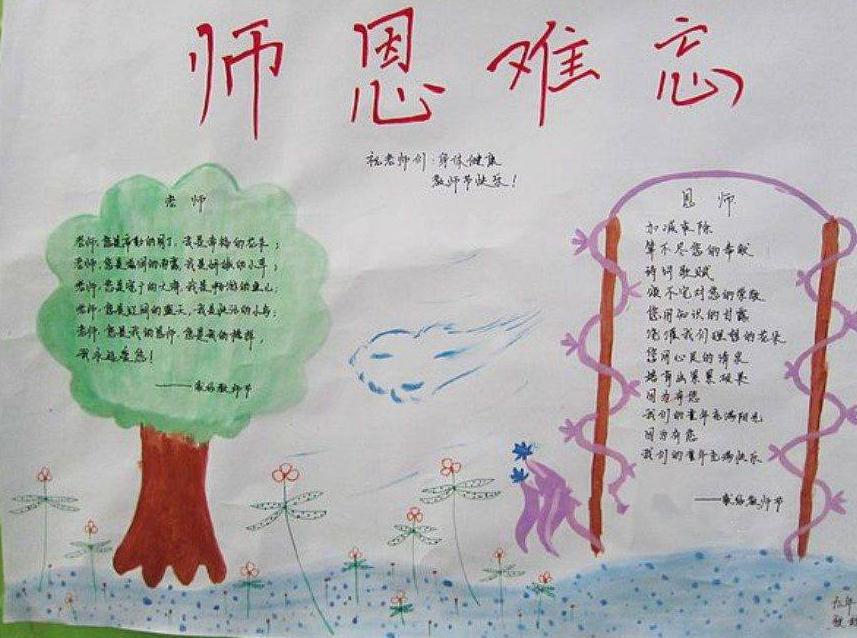 师恩难忘
祝老师们：身体健康
教师节快乐！
老师
老师，您是辛勤的园丁，我是幸福的花朵；
老师，您是滋润的雨露，我是娇嫩的小草；
老师，您是宽广的大海，我是畅游的鱼儿；
老师，您是辽阔的蓝天，我是快活的小鸟；
老师，您是我的恩师，您是我的榜样，
我永远爱您！
——献给教师节
恩师
加减乘除
算不尽您的奉献
诗词歌赋
颂不完对您的崇敬
您用知识的甘露
浇灌我们理想的花朵
您用心灵的清泉
培育出累累硕果
因为有您
我们的童年充满阳光
因为有您
我们的童年充满快乐
——献给教师节